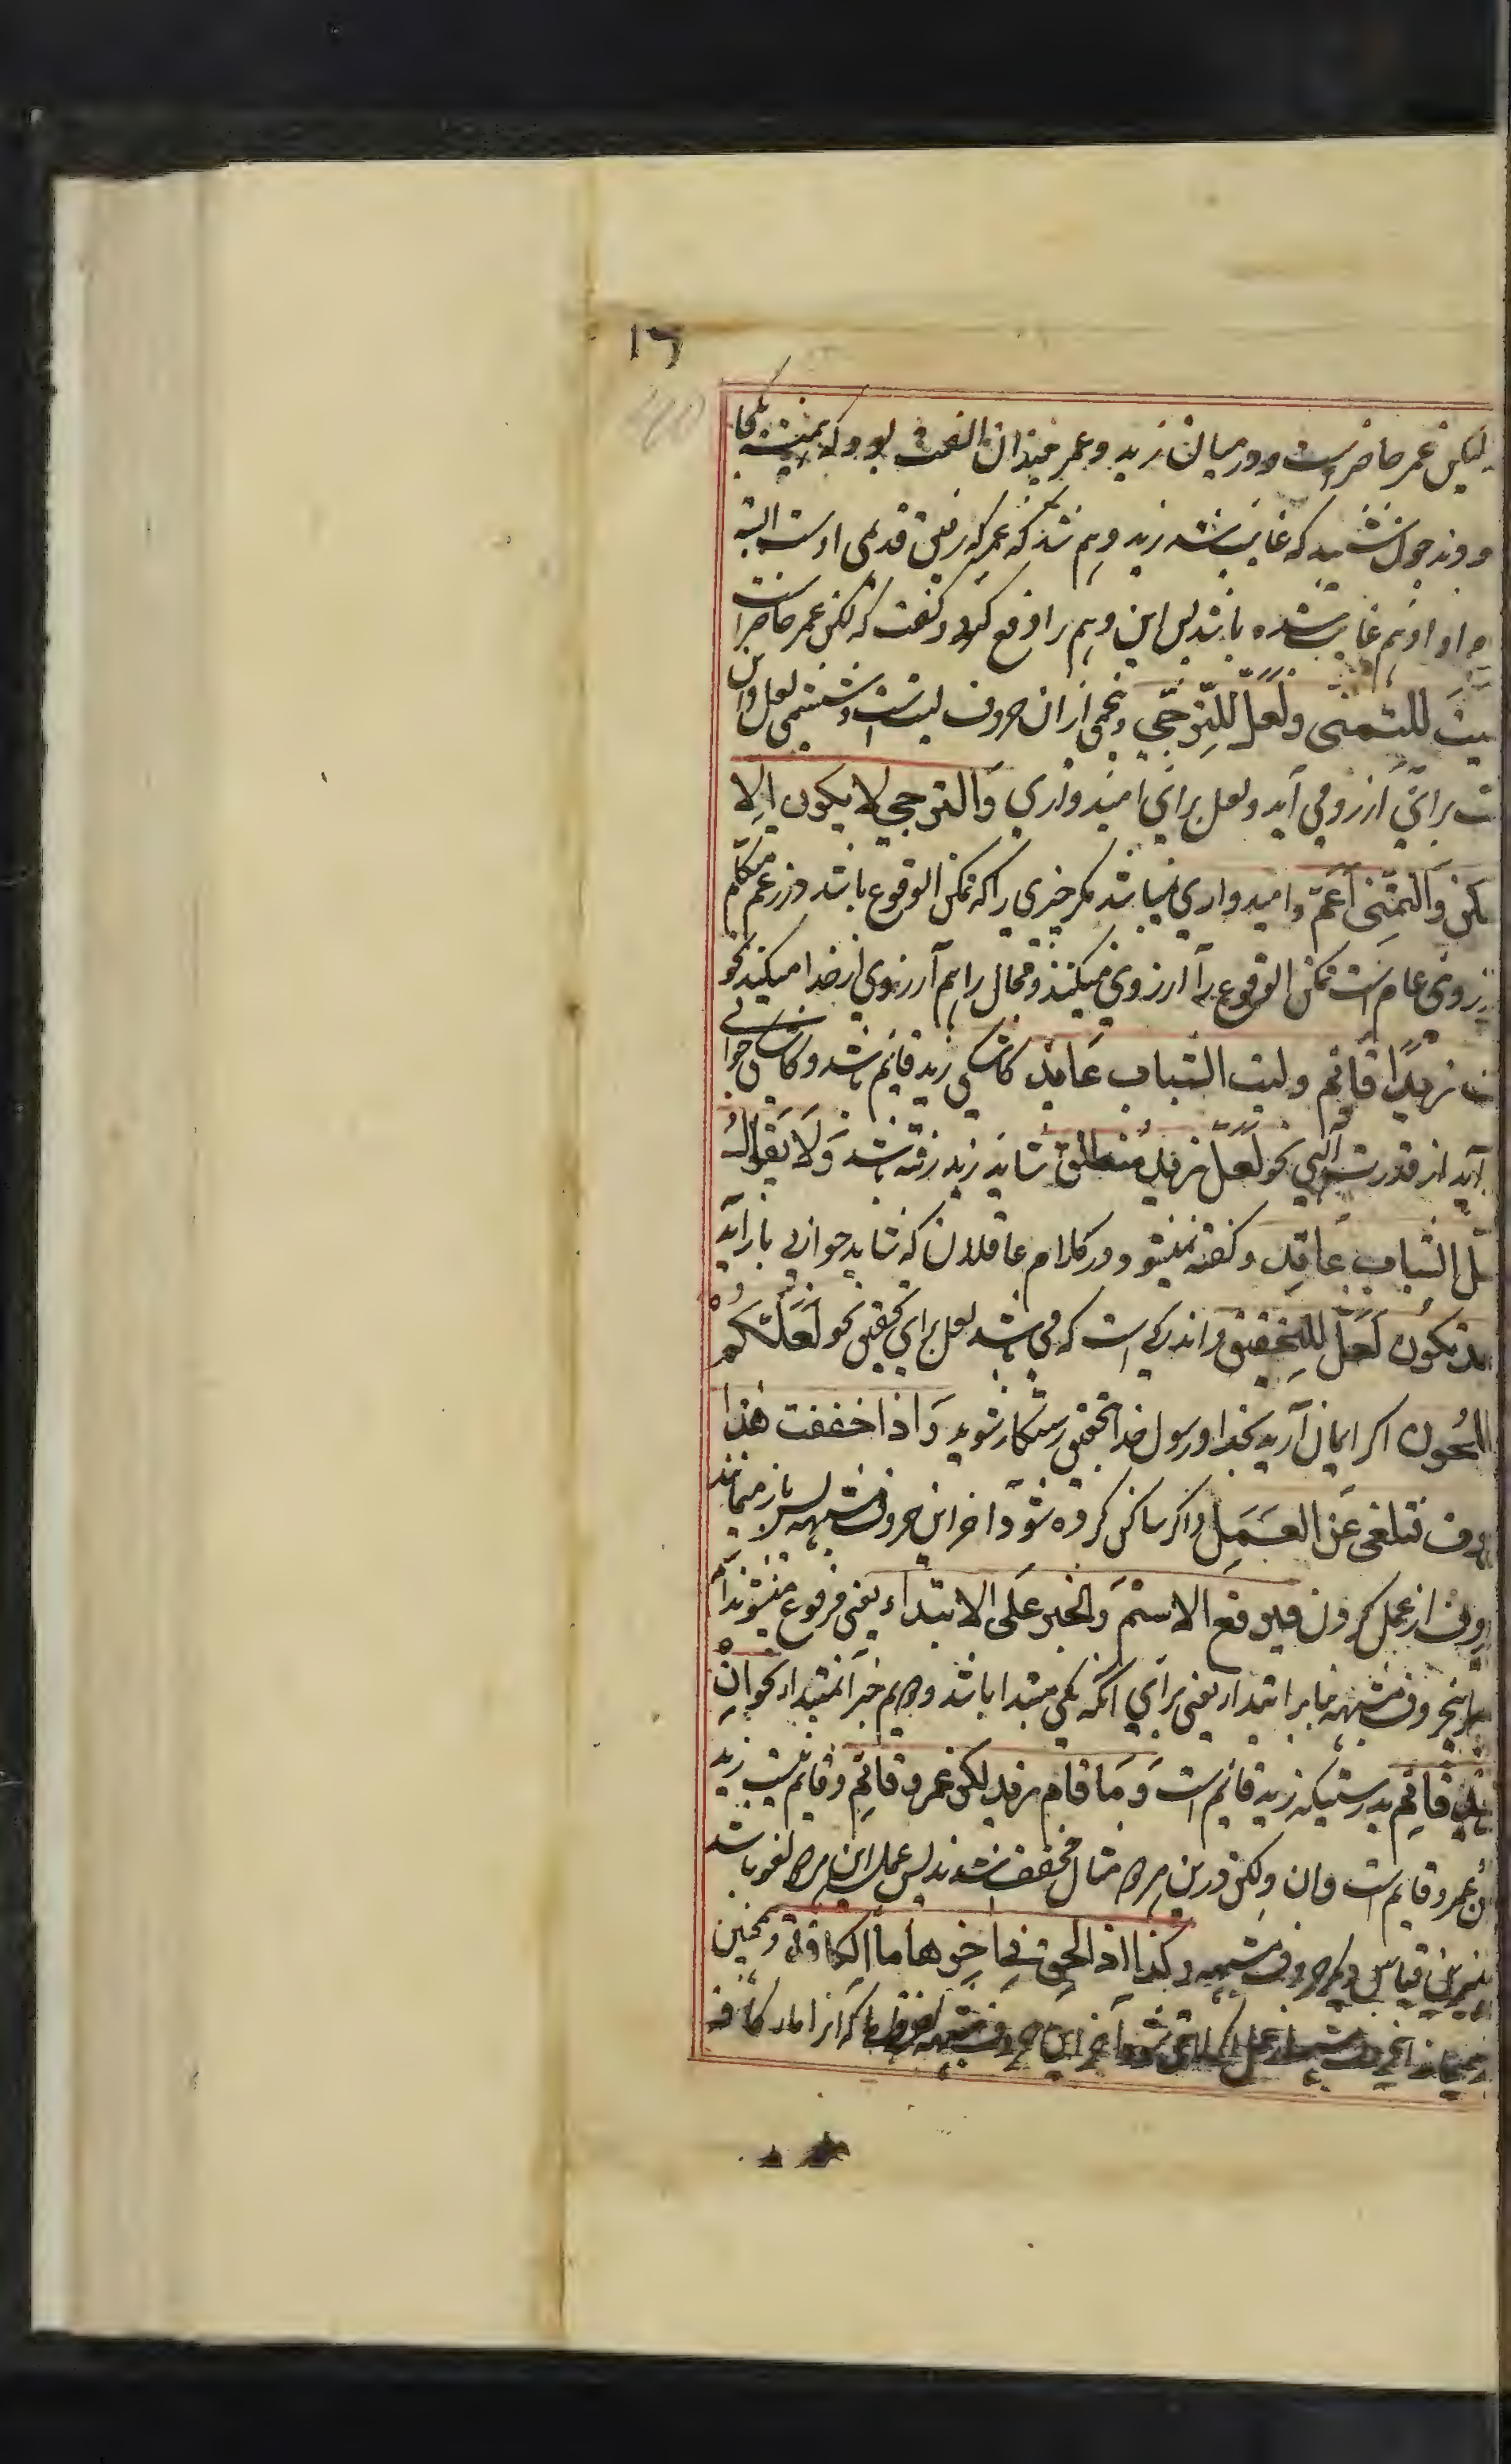 ١٦
40
لیکن عمر حاضر است و درمیان زید و عمر چندان الفت بود که همیشه یکجا
بودند چون شنید که غایب شد زید وهم شد که عمر که رفیق قدیمی اوست البته
او هم غایب شده باشد پس این وهم را دفع کرد و گفت که لکن عمر حاضر است
لیت للتمنی ولعلّ للترجّی و پنجمی ازان حروف لیت است و ششمی لعل و این
ت برای آرزو می آید و لعل برای امیدواری والترجی لا یکون الا
مکن والتمنی اعمّ و امیدواری نمیباشد مکر چیزی را که ممکن الوقوع باشد در زعم متکلم
آرزوی عام است ممکن الوقوع را آرزوی میکنند و محال را هم آرزوی از خدا میکنند نحو
ت زیدًا قائم ولیت الشباب عائد کاشکی زید قائم باشد و کاشکی جوانی
آید از قدرت الهی نحو لعلّ زیدٌ منطلق شاید زید رفته باشد وَلَا یقال
عل الشباب عائد و گفته نمیشود در کلام عاقلان که شاید جوانی باز آید
قد تکون لعلّ للتحقیق و اندکی است که می باشد لعل برای تحقیق نحو لعلّکم
تفلحُون اکر ایمان آرید بخدا و رسول خدا بتحقیق رستکار شوید وَاذا خففت هذا
الحروف تتلغی عَن العَمَل و اکر ساکن کرده شود آخر این حروف مشبهه پس باز میمانند
حروف از عمل کردن فیرفع الاسم والخبر عَلی الابتداء یعنی مرفوع میشوند
اینحروف مشبهه بنا بر ابتدا یعنی برای آنکه یکی مبتدا باشد و دویم خبر آنمبتدا نحو اِنْ
زید قائم بدرستیکه زید قائم است وَمَا قام زید لکن عمرو قائم و قایم نیست زید
کن عمرو قایم است و ان و لکن درین هر دو مثال مخفف شدند پس عمل این هر دو لغو باشد
برین قیاس دیگر حروف مشبهه وکذا اذا لحق فی آخرها ما الکافة و همچنین
باز میماند اینحروف مشبهه از عمل اکر لاحق شود آخر این حروف مشبهه لفظ ما که آنرا ماء کافه